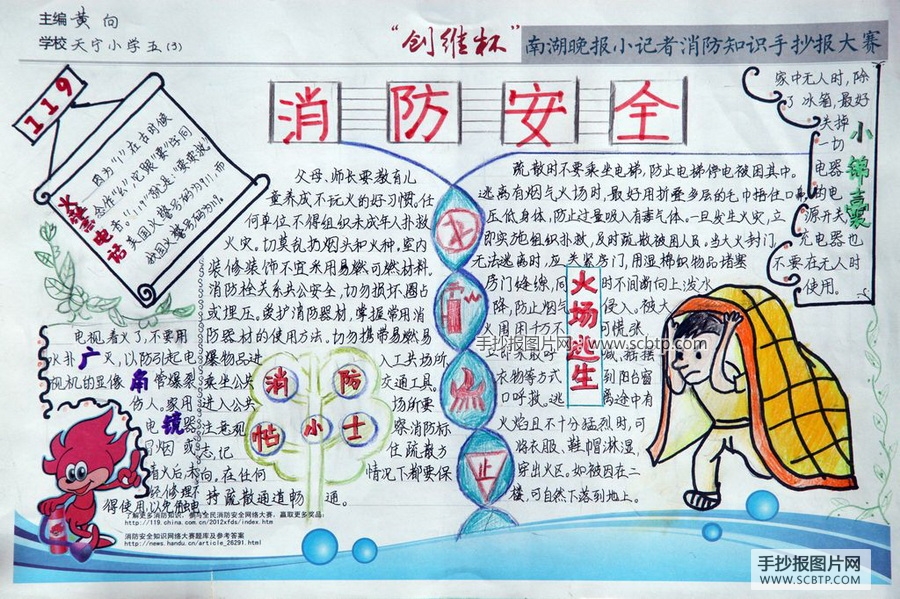 主编 黄向
学校 天宁小学五(3)
“创维杯”
南湖晚报小记者消防知识手抄报大赛
消防安全
119
火警电话
因为“1”在古时候
念作“幺”,它跟“要”字同
音。“119”就是“要要救”。
美国火警号码为911,而
我国火警号码为119。
电视着火了,不要用
水扑灭,以防引起电
视机的显像管爆裂
伤人。家用
电器
冒烟或
着火后未
经修理不
得使用,以免触电
广角镜
父母、师长要教育儿
童养成不玩火的好习惯,任
何单位不得组织未成年人扑救
火灾。切莫乱扔烟头和火种。室内
装修装饰不宜采用易燃可燃材料。
消防栓关系共公安全,切勿损坏圈占
或埋压。爱护消防器材,掌握常用消
防器材的使用方法。切勿携带易燃易
爆物品进入工共场所
乘坐公共交通工具。
进入公共场所要
注意观察消防标
志,记住疏散方
向。在任何情况下都要保
持疏散通道畅通。
消防小帖士
止
疏散时不要乘坐电梯,防止电梯停电被困其中。
逃离有烟气火场时,最好用折叠多层的毛巾捂住口鼻,
压低身体,防止过量吸入有毒气体。一旦发生火灾,立
即实施组织扑救,及时疏散被困人员。当大火封门,
无法逃离时,应关紧房门,用湿棉织物品堵塞
房门缝缘,同时不间断向上泼水
降,防止烟气侵入。被大
火围困千万不可慌张,
衣物等方式到阳台窗
口呼救。逃离途中有
火焰且不十分猛烈时,可
将衣服、鞋帽淋湿,
穿出火区。如被困在二
楼,可自然下落到地上。
火场逃生
小锦囊
家中无人时,除
了冰箱,最好
关掉一切
电器的电
源开关
充电器也
不要在无人时
使用。
了解更多消防知识,参与全民消防安全网络大赛,赢取更多奖品:
http://119.china.com.cn/2012xfds/index.htm
消防安全知识网络大赛题库及参考答案
http://news.handu.cn/article_26291.html
手抄报图片网
www.scbtp.com
手抄报图片网
WWW.SCBTP.COM